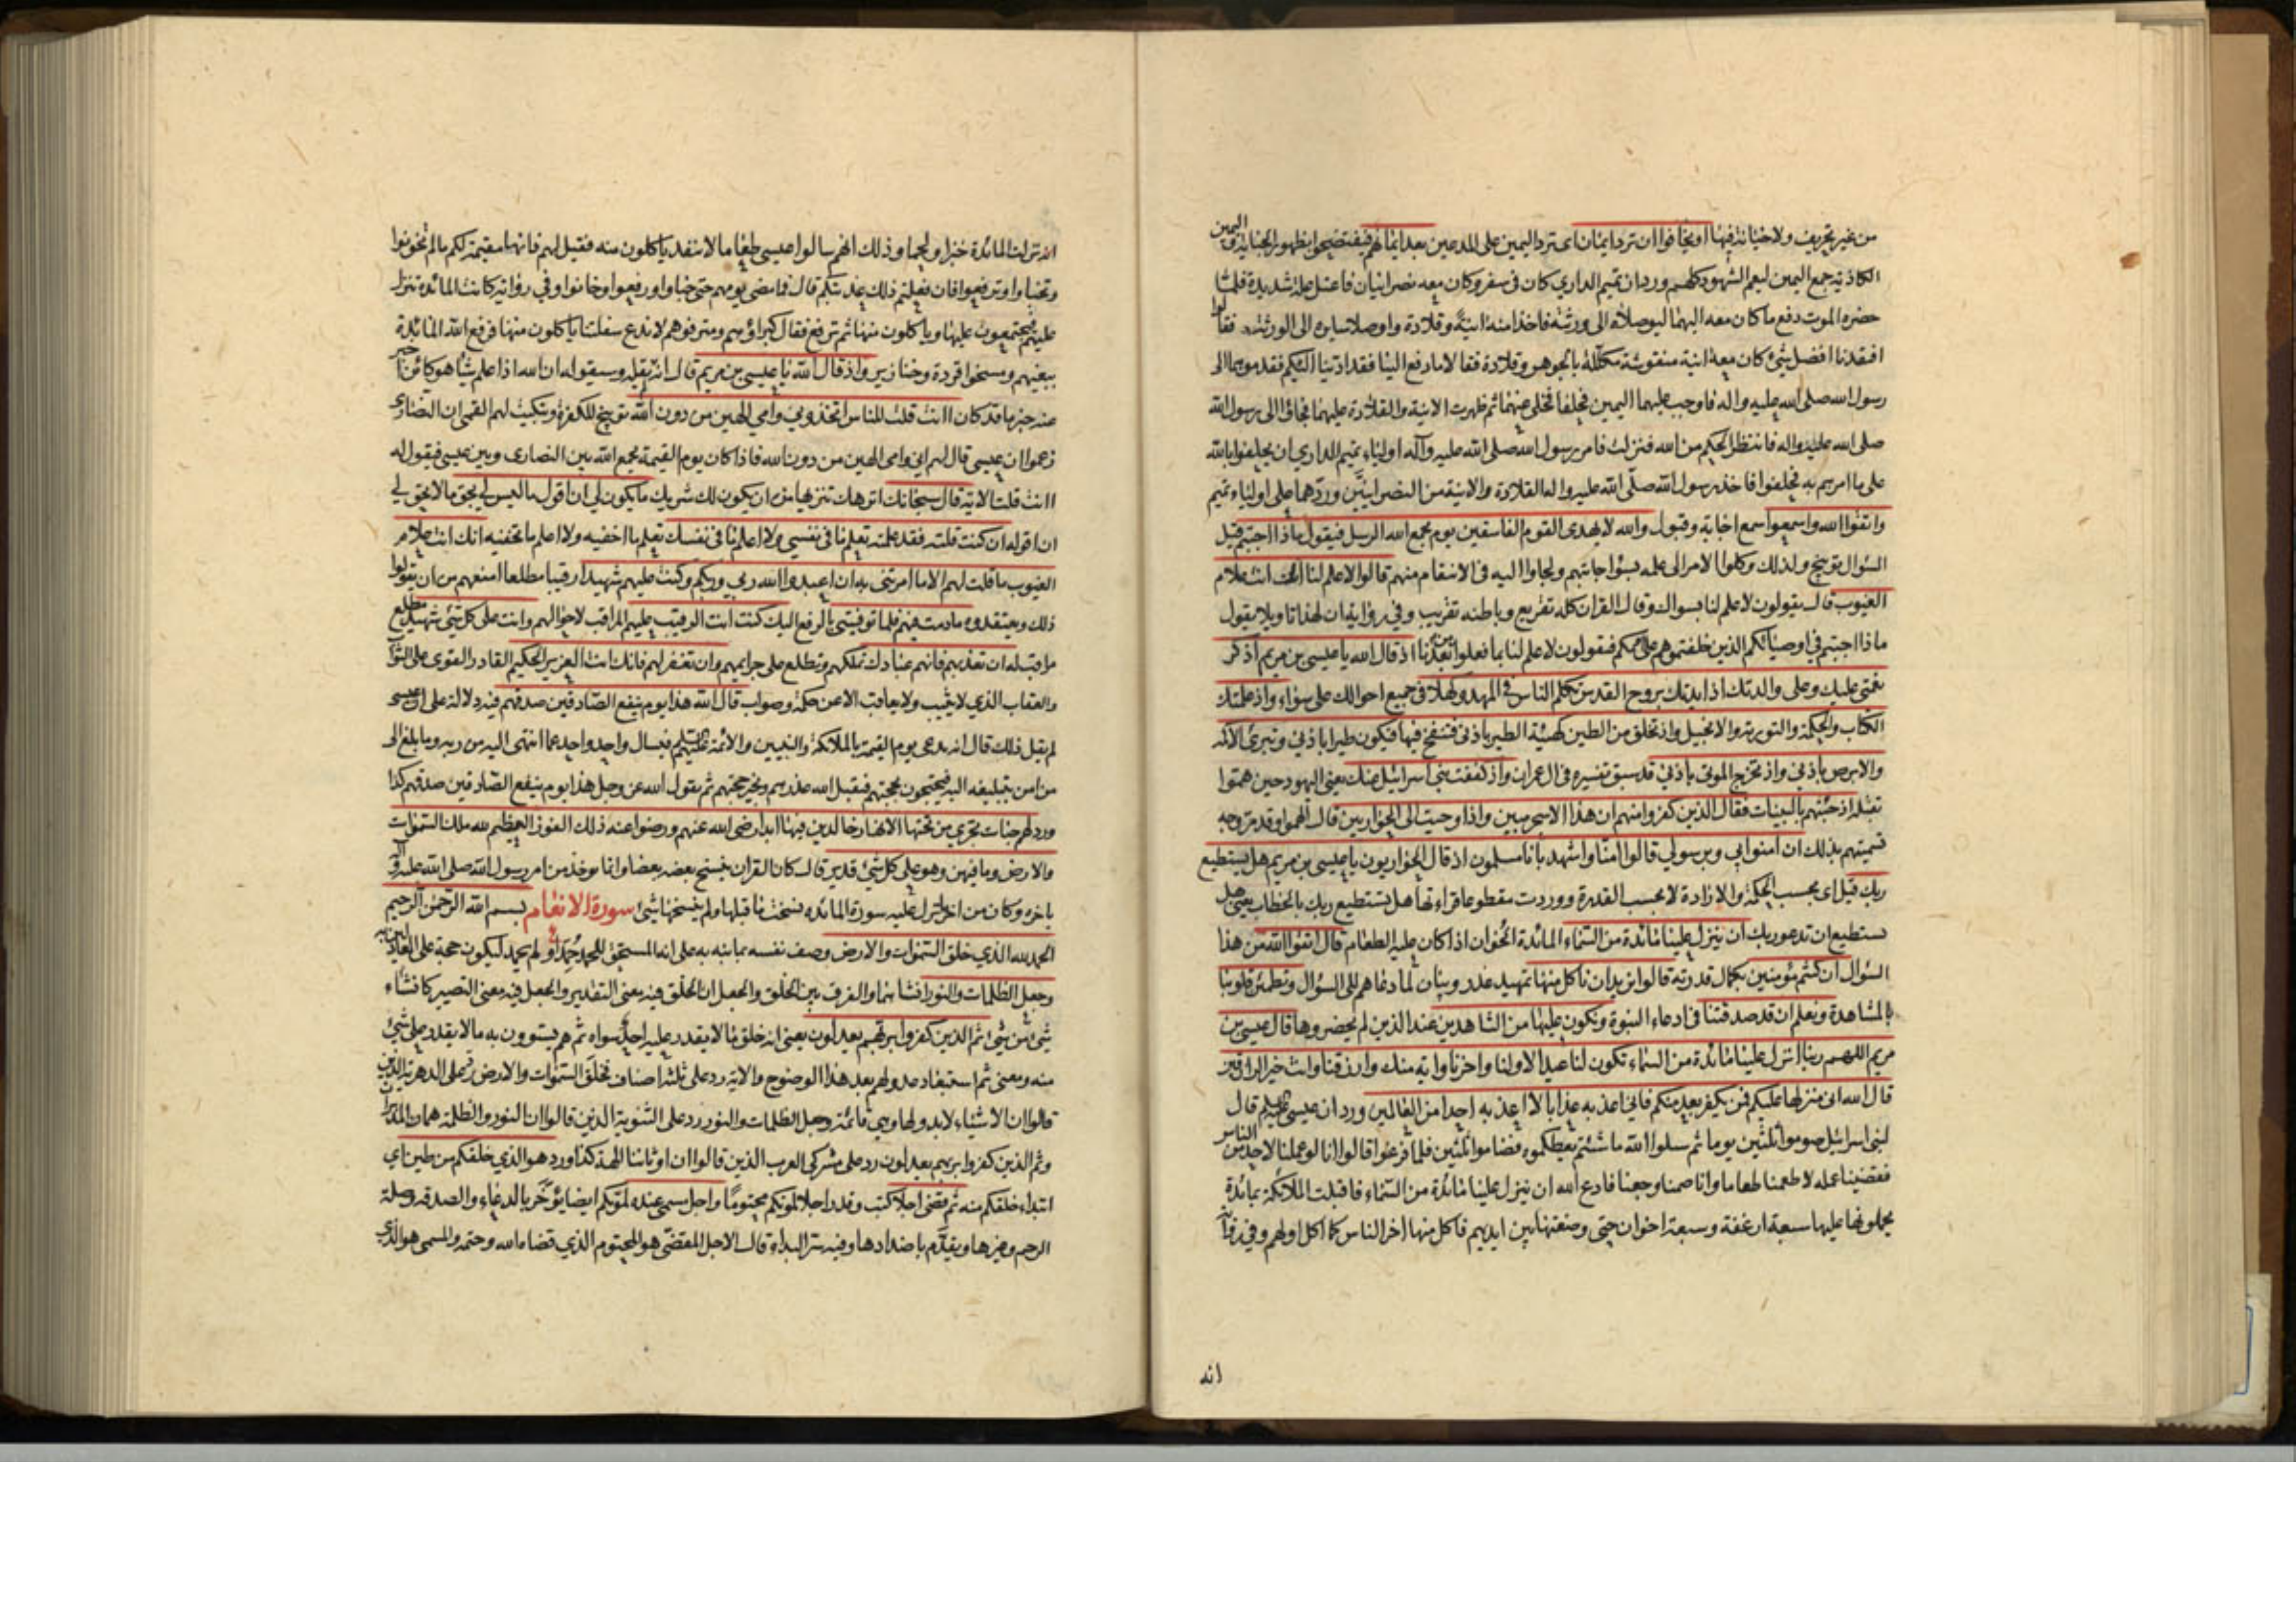 من غير تحريف ولا خيانة فيها او يخافوا ان ترد ايمان اى ترد اليمين على المدعين بعد ايمانهم فيفتضحوا بظهور الخيانة و اليمين
الكاذبة جمع اليمين ليعم الشهود كلهم ورد ان تميم الداري كان في سفر وكان معه نصرانيان فاعتل علة شديدة فلما
حضره الموت دفع ما كان معه اليهما ليوصلاه الى ورثته فاخذا منه انية وقلادة واوصلا سايره الى الورثة فقالوا
افتقدنا افضل شئ كان معه انية منقوشة مكللة بالجوهر وقلادة فقالا ما دفع الينا فقد ادينا اليكم فقدموهما الى
رسول الله صلى الله عليه واله فاوجب عليهما اليمين فحلفا فخلى عنهما ثم ظهرت الانية والقلادة عليهما فجاؤا الى رسول الله
صلى الله عليه واله فانتظر الحكم من الله فنزلت فامر رسول الله صلى الله عليه وآله اولياء تميم الداري ان يحلفوا بالله
على ما امرهم به فحلفوا فاخذ رسول الله صلى الله عليه واله القلادة والانية من النصرانيين وردهما على اولياء تميم
واتقوا الله واسمعوا سمع اجابة وقبول والله لا يهدى القوم الفاسقين يوم يجمع الله الرسل فيقول ماذا اجبتم قيل
السؤال توبيخ ولذلك وكلوا الامر الى علمه بسؤ اجابتهم ولجاوا اليه في الانتقام منهم قالوا لا علم لنا انك انت علام
الغيوب قال يقولون لا علم لنا بسواك وقال القران كله تقريع وباطنه تقريب وفي رواية ان لهذا تاويلا يقول
ماذا اجبتم في اوصيائكم الذين خلفتموهم على اممكم فيقولون لا علم لنا بما فعلوا من بعدنا اذ قال الله يا عيسى بن مريم اذكر
نعمتي عليك وعلى والدتك اذ ايدتك بروح القدس تكلم الناس في المهد وكهلا في جميع احوالك على سواء واذ علمتك
الكتاب والحكمة والتورية والانجيل واذ تخلق من الطين كهيئة الطير باذني فتنفخ فيها فيكون طيرا باذني وتبرئ الاكمه
والابرص باذني واذ تخرج الموتى باذني قد سبق تفسيره في ال عمران واذ كففت بني اسرائيل عنك يعني اليهود حين هموا
بقتله اذ جئتهم بالبينات فقال الذين كفروا منهم ان هذا الا سحر مبين واذ اوحيت الى الحواريين قال الهموا وقد مر وجه
تسميتهم بذلك ان امنوا بي وبرسولي قالوا امنا واشهد باننا مسلمون اذ قال الحواريون يا عيسى بن مريم هل يستطيع
ربك قيل اى بحسب الحكمة والارادة لا بحسب القدرة ووردت مقطوعا قراءتها هل تستطيع ربك بالخطاب يعني هل
تستطيع ان تدعو ربك ان ينزل علينا مائدة من السماء المائدة الخوان اذا كان عليه الطعام قال اتقوا الله من هذا
السؤال ان كنتم مؤمنين بكمال قدرته قالوا نريد ان ناكل منها تمهيد عذر وبيان لما دعاهم الى السؤال وتطمئن قلوبنا
بالمشاهدة ونعلم ان قد صدقتنا في ادعاء النبوة ونكون عليها من الشاهدين عند الذين لم يحضروها قال عيسى بن
مريم اللهم ربنا انزل علينا مائدة من السماء تكون لنا عيدا لاولنا واخرنا واية منك وارزقنا وانت خير الرازقين
قال الله انى منزلها عليكم فمن يكفر بعد منكم فاني اعذبه عذابا لا اعذبه احدا من العالمين ورد ان عيسى قال
لبني اسرائيل صوموا ثلثين يوما ثم سلوا الله ما شئتم يعطكموه فصاموا ثلثين فلما فرغوا قالوا انا لو عملنا لاحد من الناس
فقضينا عمله لاطعمنا طعاما وانا صمنا وجعنا فادع الله ان ينزل علينا مائدة من السماء فاقبلت الملائكة بمائدة
يحملونها عليها سبعة ارغفة وسبعة اخوان حتى وضعتها بين ايديهم فاكل منها اخر الناس كما اكل اولهم وفي رواية
انه
انه نزلت المائدة خبزا ولحما وذلك انهم سالوا عيسى طعاما لا ينفد ياكلون منه فقيل لهم فانها مقيمة لكم ما لم تخونوا
وتخباوا وترفعوا فان فعلتم ذلك عذبتكم قال فما مضى يومهم حتى خباوا ورفعوا وخانوا وفي رواية كانت المائدة تنزل
عليهم فيجتمعون عليها وياكلون منها ثم ترفع فقال كبراؤهم ومترفوهم لا ندع سفلتنا ياكلون منها فرفع الله المائدة
ببغيهم ومسخوا قردة وخنازير واذ قال الله يا عيسى بن مريم قال انه لم يقله وسيقوله ان الله اذا علم شيئا هو كائن اخبر
عنه خبر ما قد كان اانت قلت للناس اتخذوني وامي الهين من دون الله توبيخ للكفرة وتبكيت لهم القمي ان النصارى
زعموا ان عيسى قال لهم اني وامى الهين من دون الله فاذا كان يوم القيمة يجمع الله بين النصارى وبين عيسى فيقول له
اانت قلت الاية قال سبحانك انزهك تنزيها من ان يكون لك شريك ما يكون لي ان اقول ما ليس لي بحق ما لا يحق لي
ان اقوله ان كنت قلته فقد علمته تعلم ما في نفسي ولا اعلم ما في نفسك تعلم ما اخفيه ولا اعلم ما تخفيه انك انت علام
الغيوب ما قلت لهم الا ما امرتني به ان اعبدوا الله ربي وربكم وكنت عليهم شهيدا رقيبا مطلعا امنعهم من ان يقولوا
ذلك ويعتقدوه ما دمت فيهم فلما توفيتني بالرفع اليك كنت انت الرقيب عليهم المراقب لاحوالهم وانت على كل شئ شهيد مطلع
مراقب له ان تعذبهم فانهم عبادك تملكهم وتطلع على جرايمهم وان تغفر لهم فانك انت العزيز الحكيم القادر القوى على الثواب
والعقاب الذي لا يثيب ولا يعاقب الا عن حكمة وصواب قال الله هذا يوم ينفع الصادقين صدقهم فيه دلالة على ان عيسى
لم يقل ذلك قال انه يدعى يوم القيمة بالملائكة والنبيين والائمة فيسال واحد واحد عما انتهى اليه من ربه وما بلغ الى
من امر بتبليغه اليه فيحتجون بحجتهم فيقبل الله عذرهم ويجيز حجتهم ثم يقول الله عز وجل هذا يوم ينفع الصادقين صدقهم كذا
ورد لهم جنات تجري من تحتها الانهار خالدين فيها ابدا رضي الله عنهم ورضوا عنه ذلك الفوز العظيم لله ملك السموات
والارض وما فيهن وهو على كل شئ قدير قال كان القران ينسخ بعضه بعضا وانما يوخذ من امر رسول الله صلى الله عليه واله
باخره وكان من اخر ما نزل عليه سورة المائدة نسخت ما قبلها ولم ينسخها شئ سورة الانعام بسم الله الرحمن الرحيم
الحمد لله الذي خلق السموات والارض وصف نفسه بما نبه به على انه المستحق للحمد حمد او لم يحمد ليكون حجة على العادلين به
وجعل الظلمات والنور انشاهما والفرق بين الخلق والجعل ان الخلق فيه معنى التقدير والجعل فيه معنى التصيير كانشاء
شئ من شئ ثم الذين كفروا بربهم يعدلون يعني انه خلق ما لا يقدر عليه احد سواه ثم هم يستوون به ما لا يقدر على شئ
منه ومعنى ثم استبعاد عدولهم بعد هذا الوضوح والاية رد على ثلثة اصناف فخلق السموات والارض رد على الدهرية الذين
قالوا ان الاشياء لا بدو لها وهي قائمة وجعل الظلمات والنور رد على الثنوية الذين قالوا ان النور والظلمة هما المدبران
وثم الذين كفروا بربهم يعدلون رد على مشركي العرب الذين قالوا ان اوثاننا الهة كذا ورد هو الذي خلقكم من طين اي
ابتداء خلقكم منه ثم قضى اجلا كتب وقدر اجلا لموتكم محتوما واجل مسمى عنده لموتكم ايضا يؤخر بالدعاء والصدقة وصلة
الرحم وغيرها ويقدم باضدادها وفيه سر البداء قال الاجل المقضي هو المحتوم الذي قضاه الله وحتمه والمسمى هو الذي